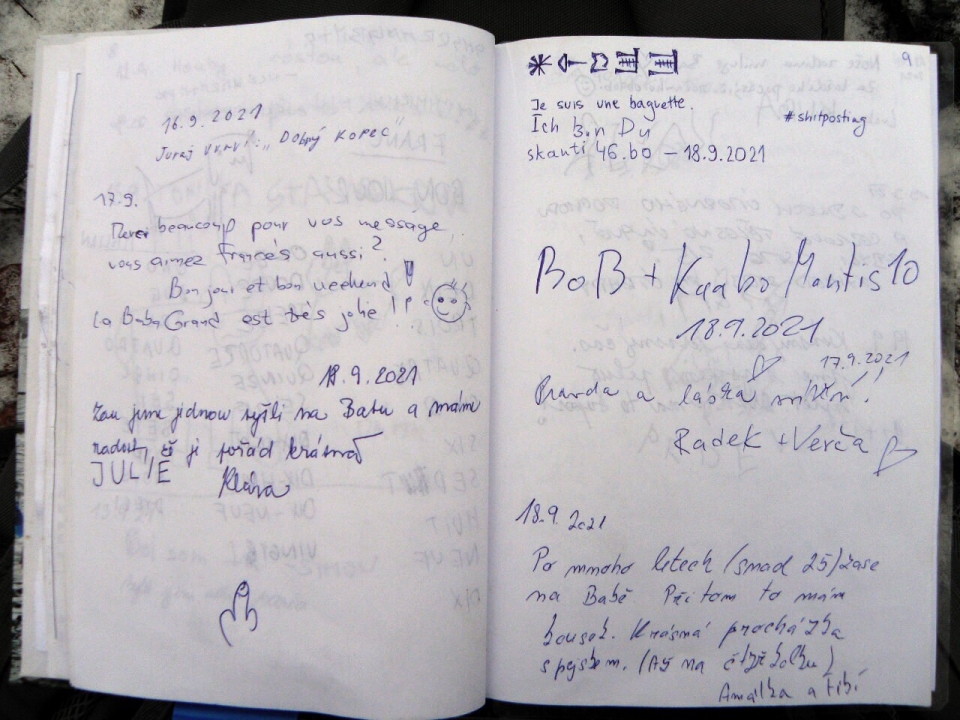 16.9.2021
Juraj : "DOBRÝ KOPEC"
17.9.
Merci beaucoup pour vos méssage,
vous aimez francés aussi?
Bonjour et bon weekend!
La Baba Grand est trés jolie!!
18.9.2021
jsme jednou vyšli na Babu a máme
radost, že je pořád krásná
JULIE Klára
9
Je suis une baguette.
#shitposting
Ich bin Du
skanti 46.bo - 18.9.2021
BoB + Kaabo Mantis 10
18.9.2021
17.9.2021
Pravda a láska vítězí!
Radek + Verča
18.9.2021
Po mnoho letech (snad 25) zase
na Babě. Při tom to mám
kousek. Krásná procházka
s pejskem. (Až na čtyřkolku)
Amálka a